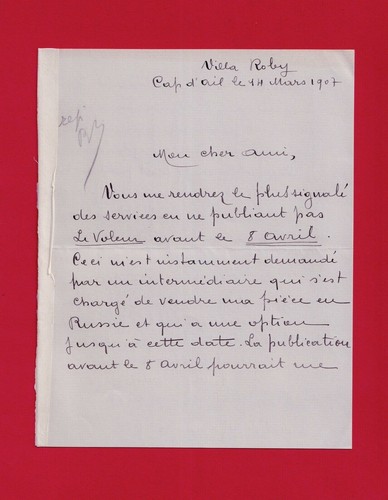 Villa Roby
Cap d'ail le 14 Mars 1907
rép
Mon cher ami,
Vous me rendrez le plus signalé
des services en ne publiant pas
Le Voleur avant le 8 avril.
Ceci m'est instamment demandé
par un intermédiaire qui s'est
chargé de vendre ma pièce en
Russie et qui a une option
jusqu'à cette date. La publication
avant le 8 avril pourrait me